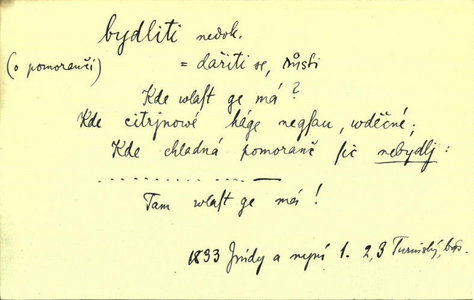 bydliti nedok.
(o pomoranči)
= dařiti se, růsti
Kde wlast ge má?
Kde citrjnowé háge negsau, wděčné;
Kde chladná pomoranč sic nebydlj:
Tam wlast ge má!
1833 Jindy a nyní 1. 2,3 Turinský, bás.